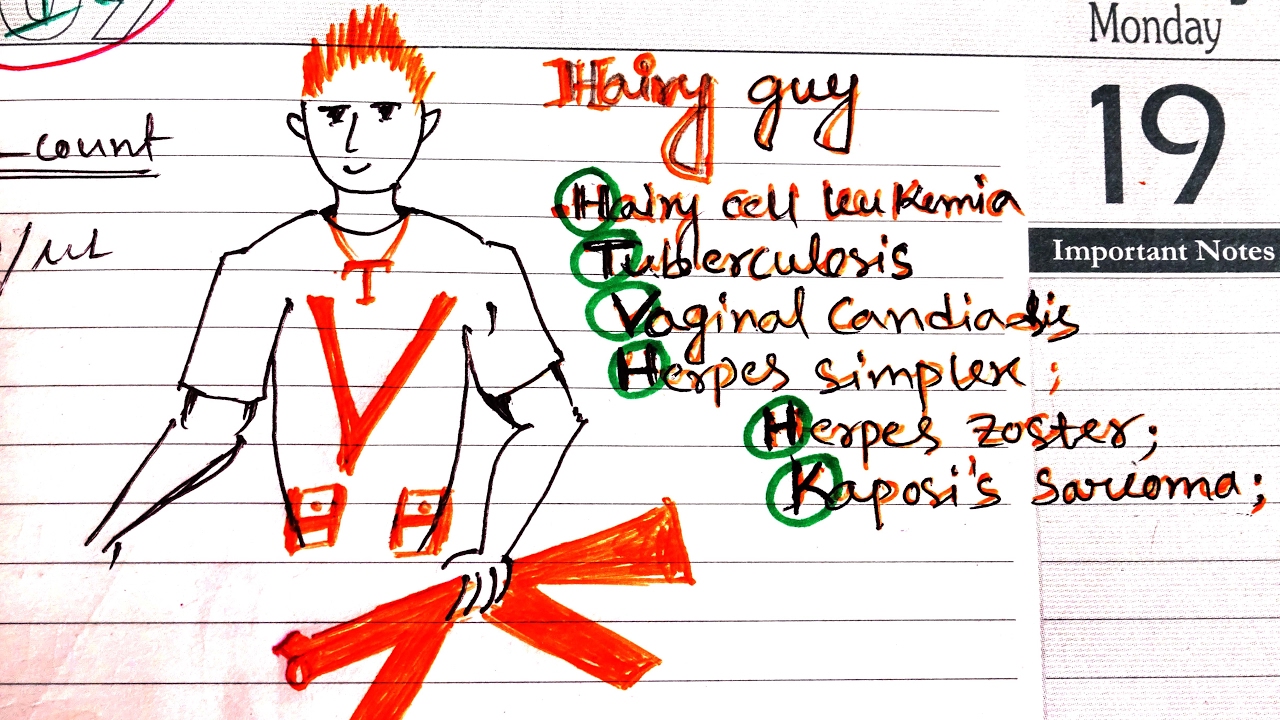 Monday
19
Important Notes
count
/uL
Hairy guy
Hairy cell leukemia
Tuberculosis
Vaginal Candiadis
Herpes simplex ;
Herpes zoster;
Kaposi's sarcoma;
T
V